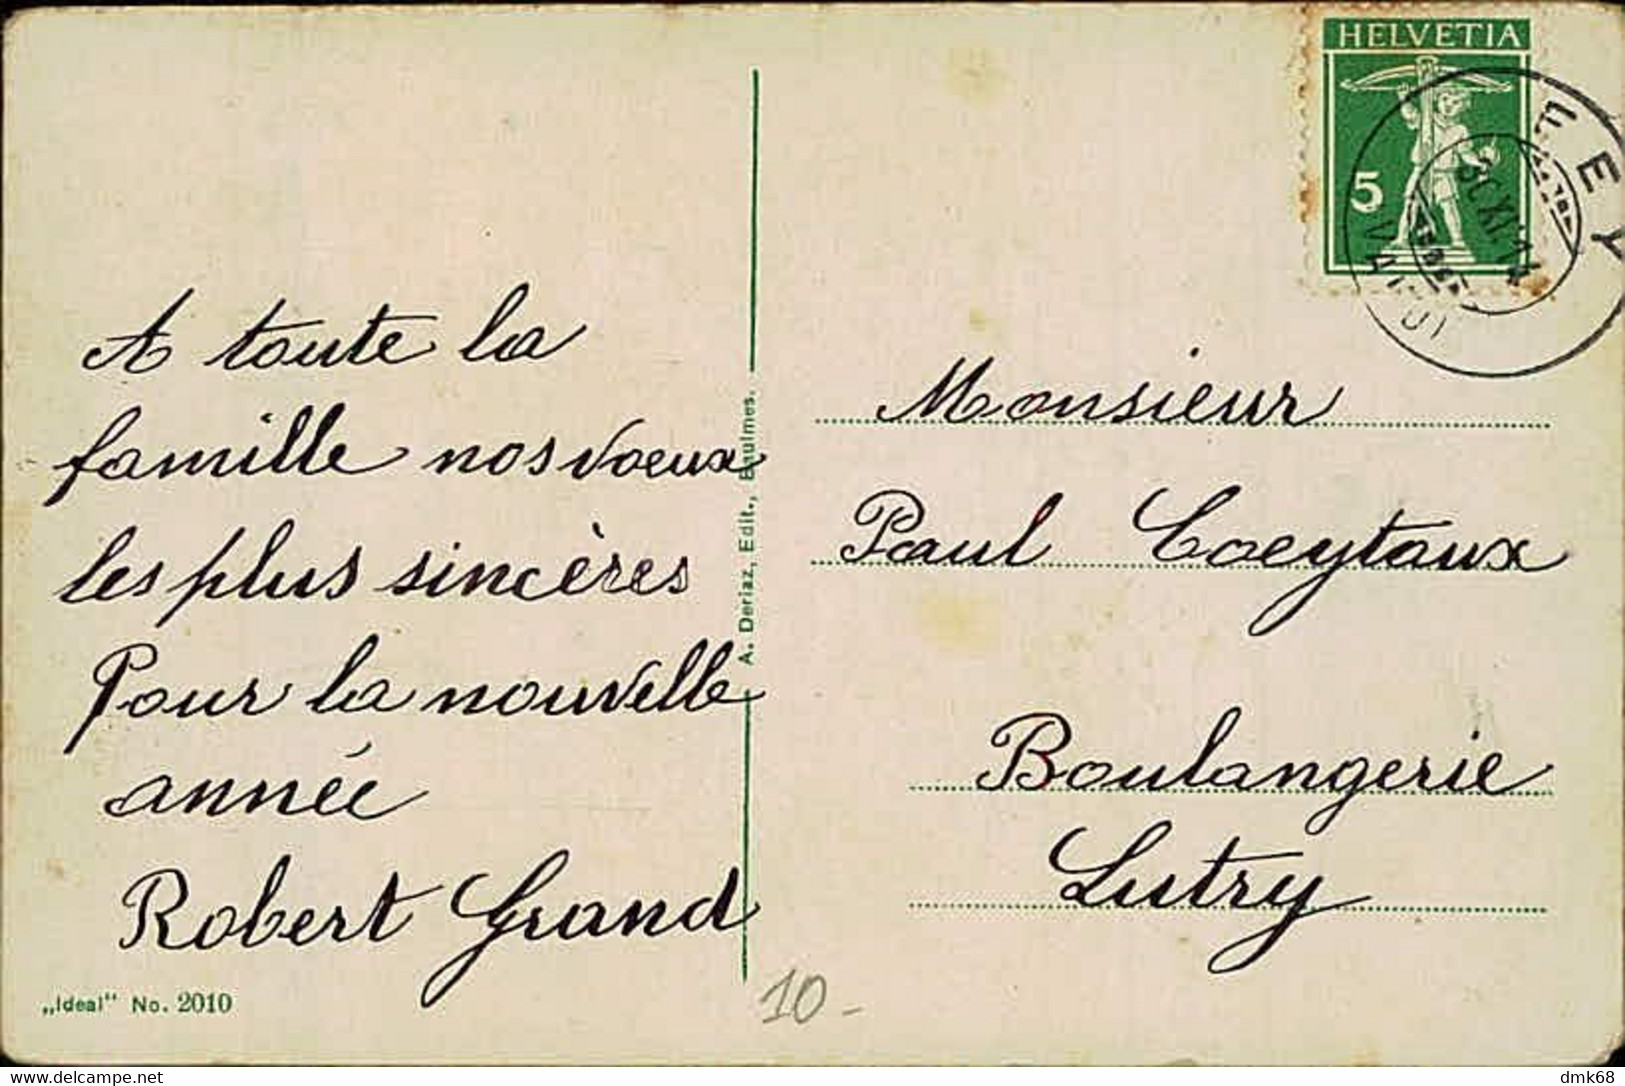 A toute la
famille nos voeux
les plus sincères
Pour la nouvelle
année
Robert Grand
„Ideal" No. 2010
A. Deriaz, Edit., Baulmes.
HELVETIA
5
FEY
(VAUD)
Monsieur
Paul Coeytaux
Boulangerie
Lutry
10 -
dmk68